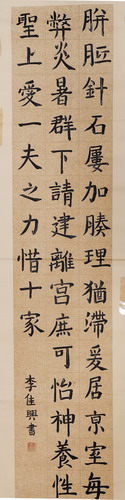 胼胝針石屢加腠理猶滯爰居京室每
弊炎暑群下請建離宮庶可怡神養性
聖上愛一夫之力惜十家
李佳興書